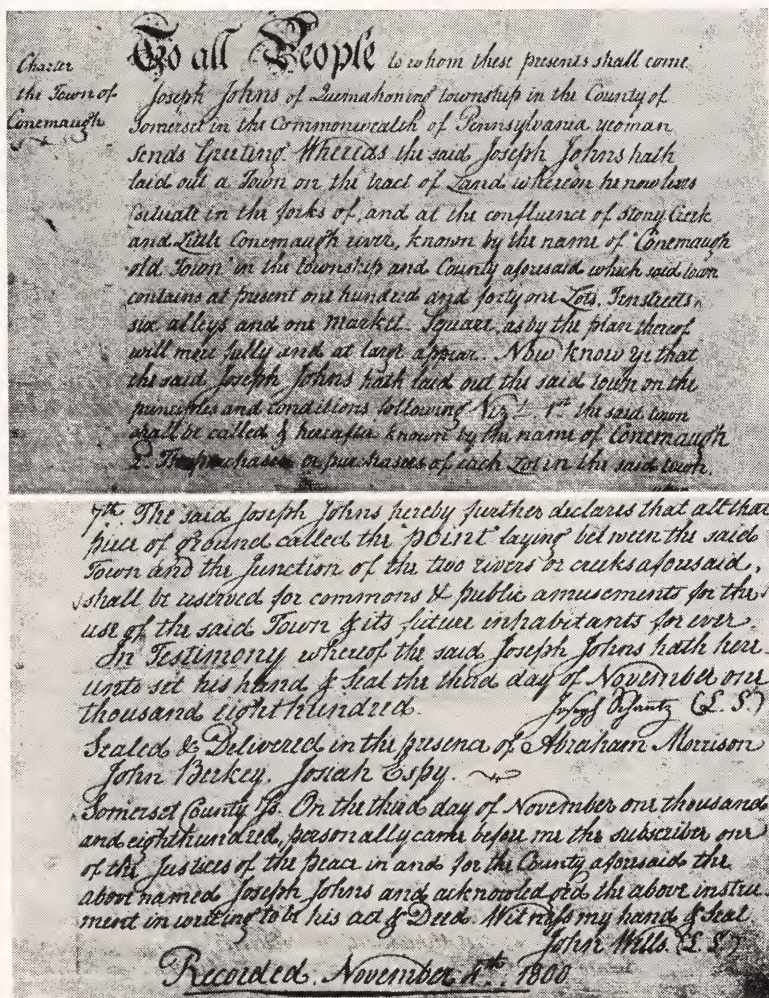 Charter
the Town of
Conemaugh
To all People to whom these presents shall come
Joseph Johns of Quemahoning township in the County of
Somerset in the Commonwealth of Pennsylvania yeoman
sends Greeting. Whereas the said Joseph Johns hath
laid out a Town on the tract of Land whereon he now lives
situate in the forks of, and at the confluence of Stony Creek
and Little Conemaugh river, known by the name of "Conemaugh
old Town" in the township and County aforesaid which said town
contains at present one hundred and forty one Lots, Ten streets,
six alleys and one Market Square, as by the plan thereof
will more fully and at large appear. Now know ye that
the said Joseph Johns hath laid out the said town on the
principles and conditions following Vizt. 1st the said town
shall be called & hereafter known by the name of Conemaugh
2. The purchaser or purchasers of each Lot in the said town,
7th. The said Joseph Johns hereby further declares that all that
piece of ground called the "point" laying between the said
Town and the junction of the two rivers or creeks aforesaid,
shall be reserved for commons & public amusements for the
use of the said Town & its future inhabitants for ever
In Testimony whereof the said Joseph Johns hath here-
unto set his hand & seal the third day of November one
thousand eight hundred. Joseph Schantz (L. S.)
Sealed & Delivered in the presence of Abraham Morrison
John Berkey. Josiah Espy.
Somerset County Ss. On the third day of November one thousand
and eight hundred, personally came before me the subscriber one
of the Justices of the peace in and for the County aforesaid the
above named Joseph Johns and acknowledged the above instru-
ment in writing to be his act & Deed. Witness my hand & Seal
John Wells. (L. S.)
Recorded November 4th. 1800